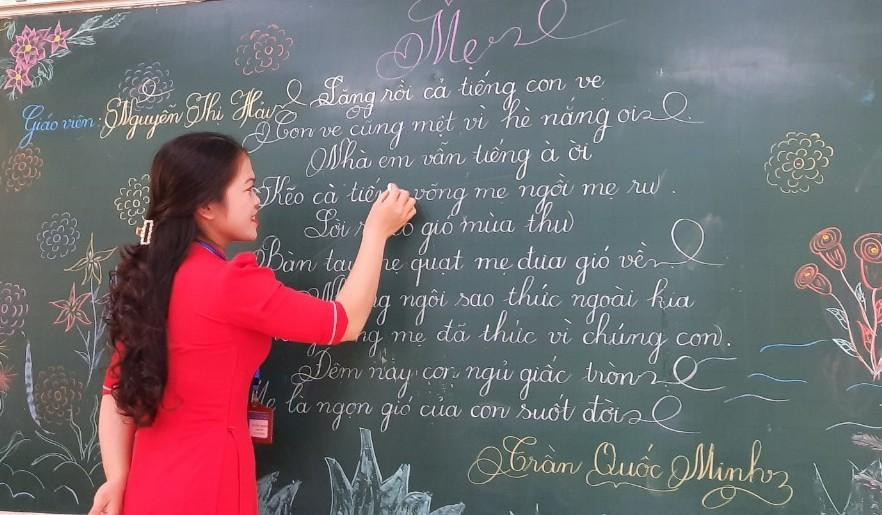 Mẹ
Giáo viên: Nguyễn Thị
Lặng rồi cả tiếng con ve
Con ve cũng mệt vì hè nắng oi
Nhà em vẫn tiếng à ời
Kẽo cà võng mẹ ngồi mẹ ru.
Lời gió mùa thu
Bàn quạt mẹ đưa gió về
ngôi sao thức ngoài kia
mẹ đã thức vì chúng con.
Đêm nay con ngủ giấc tròn
Mẹ là ngọn gió của con suốt đời
Trần Quốc Minh